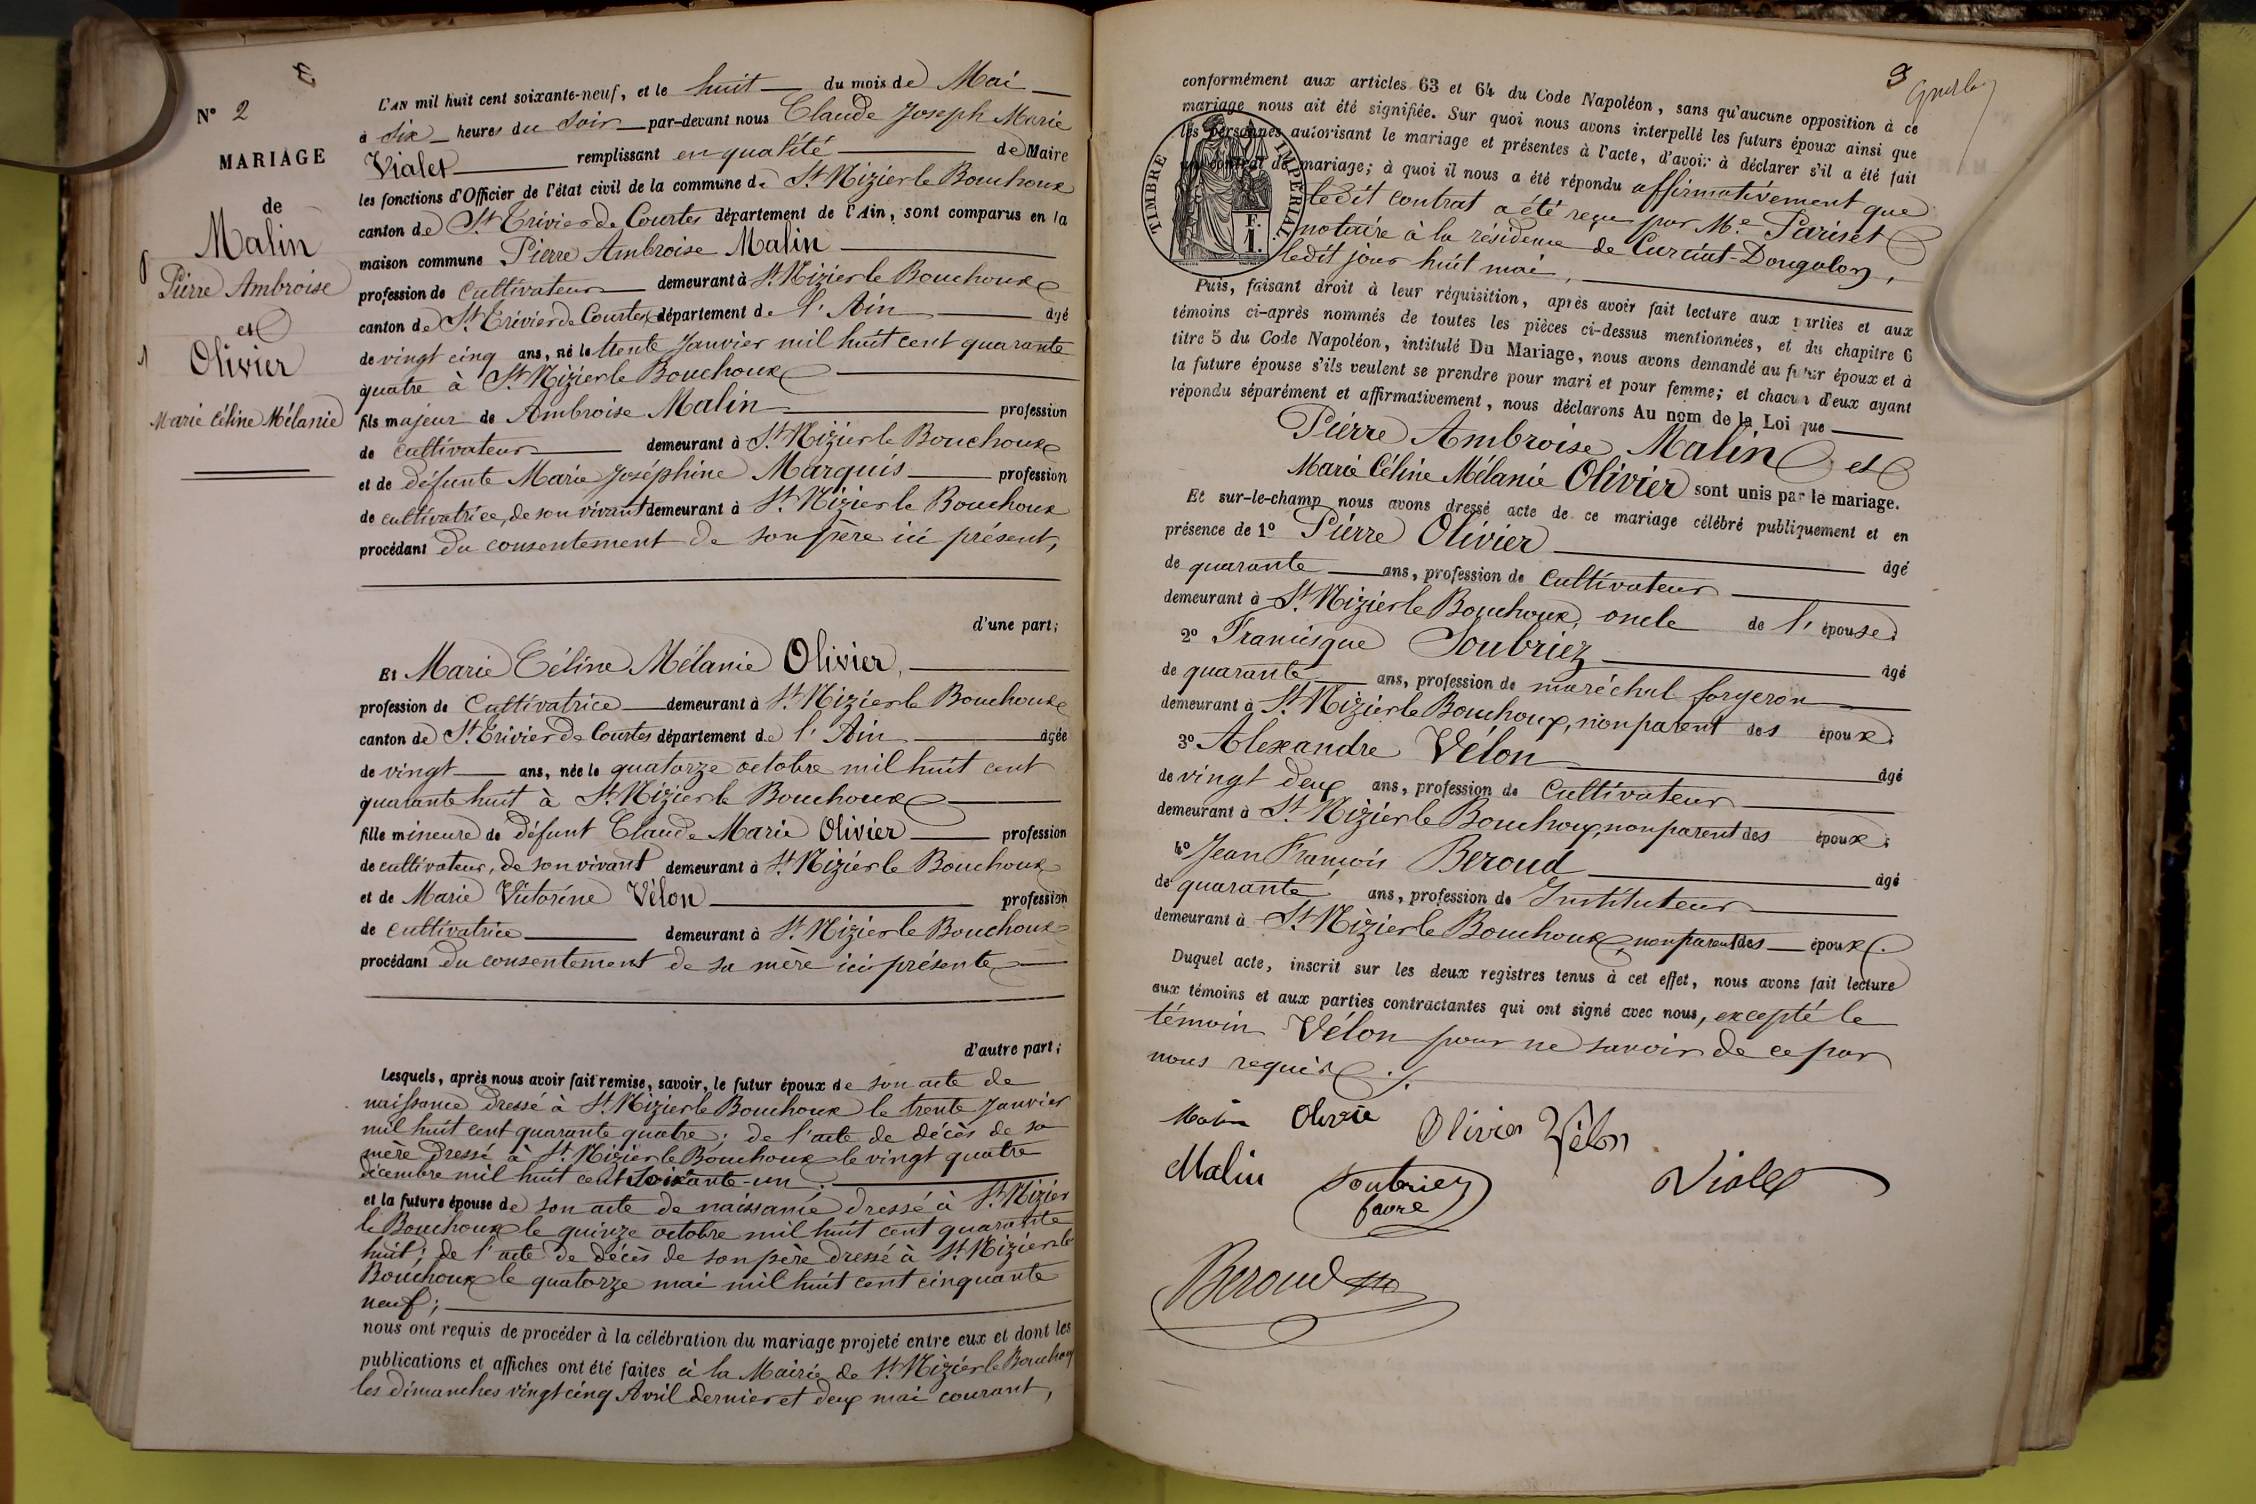 N° 2
MARIAGE
de
Malin
Pierre Ambroise
et
Olivier
Marie Céline Mélanie
L'AN mil huit cent soixante-neuf, et le huit du mois de Mai
à six heures du soir par-devant nous Claude Joseph Marie
Vialet remplissant en qualité de Maire
les fonctions d'Officier de l'état civil de la commune de St Nizier le Bouchoux
canton de St Trivier de Courtes département de l'Ain, sont comparus en la
maison commune Pierre Ambroise Malin
profession de Cultivateur demeurant à St Nizier le Bouchoux
canton de St Trivier de Courtes département de l'Ain âgé
de vingt cinq ans, né le trente Janvier mil huit cent quarante
quatre à St Nizier le Bouchoux
fils majeur de Ambroise Malin profession
de cultivateur demeurant à St Nizier le Bouchoux
et de défunte Marie Joséphine Marquis profession
de cultivatrice, de son vivant demeurant à St Nizier le Bouchoux
procédant du consentement de son père ici présent,
d'une part;
Et Marie Céline Mélanie Olivier,
profession de Cultivatrice demeurant à St Nizier le Bouchoux
canton de St Trivier de Courtes département de l'Ain âgée
de vingt ans, née le quatorze octobre mil huit cent
quarante huit à St Nizier le Bouchoux
fille mineure de défunt Claude Marie Olivier profession
de cultivateur, de son vivant demeurant à St Nizier le Bouchoux
et de Marie Victorine Vélon profession
de cultivatrice demeurant à St Nizier le Bouchoux
procédant du consentement de sa mère ici présente
d'autre part;
Lesquels, après nous avoir fait remise, savoir, le futur époux de son acte de
naissance dressé à St Nizier le Bouchoux le trente Janvier
mil huit cent quarante quatre; de l'acte de décès de sa
mère dressé à St Nizier le Bouchoux le vingt quatre
décembre mil huit cent soixante-un.
et la future épouse de son acte de naissance dressé à St Nizier
le Bouchoux le quinze octobre mil huit cent quarante
huit; de l'acte de décès de son père dressé à St Nizier le
Bouchoux le quatorze mai mil huit cent cinquante
neuf;
nous ont requis de procéder à la célébration du mariage projeté entre eux et dont les
publications et affiches ont été faites à la Mairie de St Nizier le Bouchoux
les dimanches vingt cinq Avril dernier et deux mai courant,
conformément aux articles 63 et 64 du Code Napoléon, sans qu'aucune opposition à ce
mariage nous ait été signifiée. Sur quoi nous avons interpellé les futurs époux ainsi que
les personnes autorisant le mariage et présentes à l'acte, d'avoir à déclarer s'il a été fait
un contrat de mariage; à quoi il nous a été répondu affirmativement que
ledit contrat a été reçu par Me Pariset
notaire à la résidence de Curciat-Dongalon,
ledit jour huit mai,
TIMBRE IMPERIAL
F.
1.
Puis, faisant droit à leur réquisition, après avoir fait lecture aux parties et aux
témoins ci-après nommés de toutes les pièces ci-dessus mentionnées, et du chapitre 6
titre 5 du Code Napoléon, intitulé Du Mariage, nous avons demandé au futur époux et à
la future épouse s'ils veulent se prendre pour mari et pour femme; et chacun d'eux ayant
répondu séparément et affirmativement, nous déclarons Au nom de la Loi que
Pierre Ambroise Malin et
Marie Céline Mélanie Olivier sont unis par le mariage.
Et sur-le-champ nous avons dressé acte de ce mariage célébré publiquement et en
présence de 1° Pierre Olivier âgé
de quarante ans, profession de Cultivateur
demeurant à St Nizier le Bouchoux, oncle de l'épouse.
2° Francisque Soubriez âgé
de quarante ans, profession de maréchal forgeron
demeurant à St Nizier le Bouchoux, non parent des époux.
3° Alexandre Vélon âgé
de vingt deux ans, profession de Cultivateur
demeurant à St Nizier le Bouchoux, non parent des époux.
4° Jean François Beroud âgé
de quarante ans, profession de Instituteur
demeurant à St Nizier le Bouchoux, non parent des époux.
Duquel acte, inscrit sur les deux registres tenus à cet effet, nous avons fait lecture
aux témoins et aux parties contractantes qui ont signé avec nous, excepté le
témoin Vélon pour ne savoir de ce par
nous requis.
Malin Olivie Olivier Vélon
Malin Soubriez Vialet
favre
Beroud